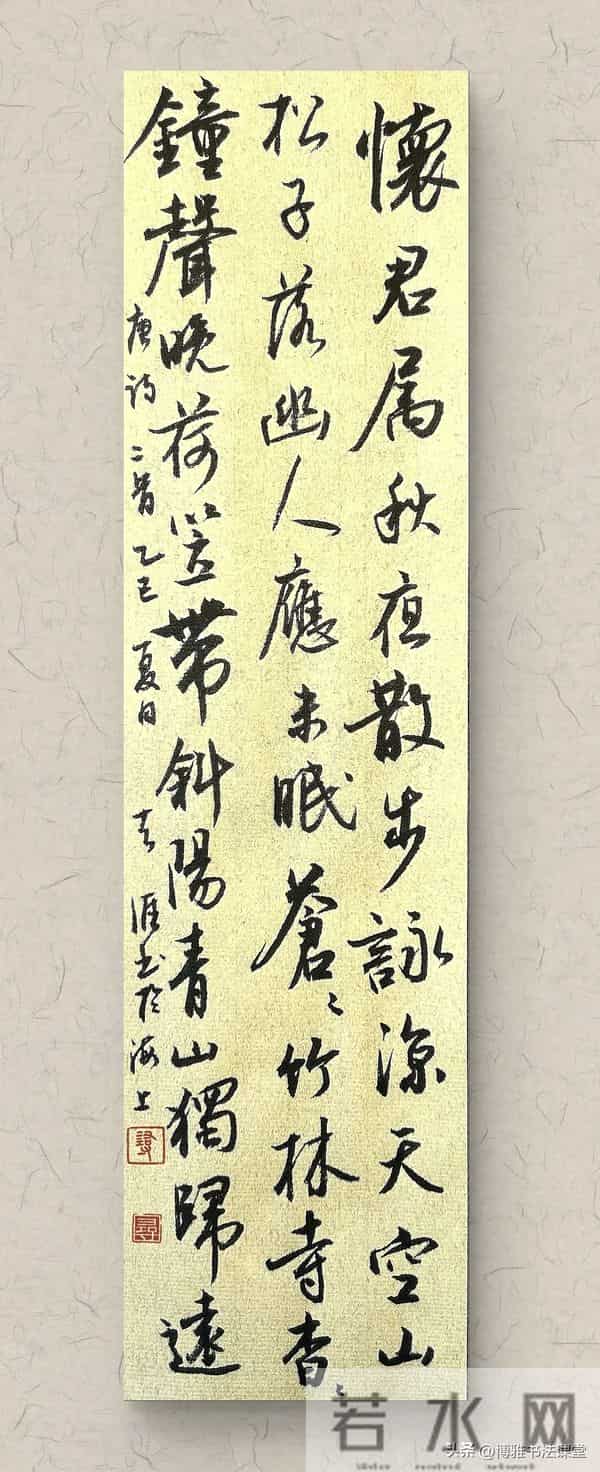 懷君属秋夜散步詠凉天空山
松子落幽人應未眠蒼〻竹林寺杳〻
鐘聲晚荷笠帶斜陽青山獨歸遠
唐詩二首乙巳夏日
涯書於海上
若水网
头条@博雅书法课堂